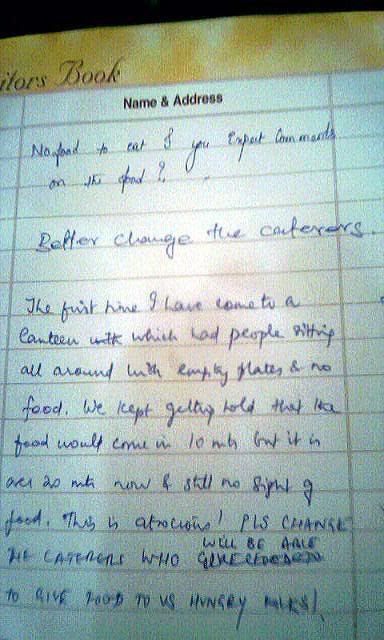 itors Book
Name & Address
No food to eat & you Expect Comments
on the food?
Better change the caterers.
The first time I have come to a
Canteen with which had people sitting
all around with empty plates & no
food. We kept getting told that the
food would come in 10 mts but it is
over 20 mts now & still no sight of
food. This is atrocious! PLS CHANGE
THE CATERERS WHO WILL BE ABLE
TO GIVE FOOD TO US HUNGRY FOLKS!